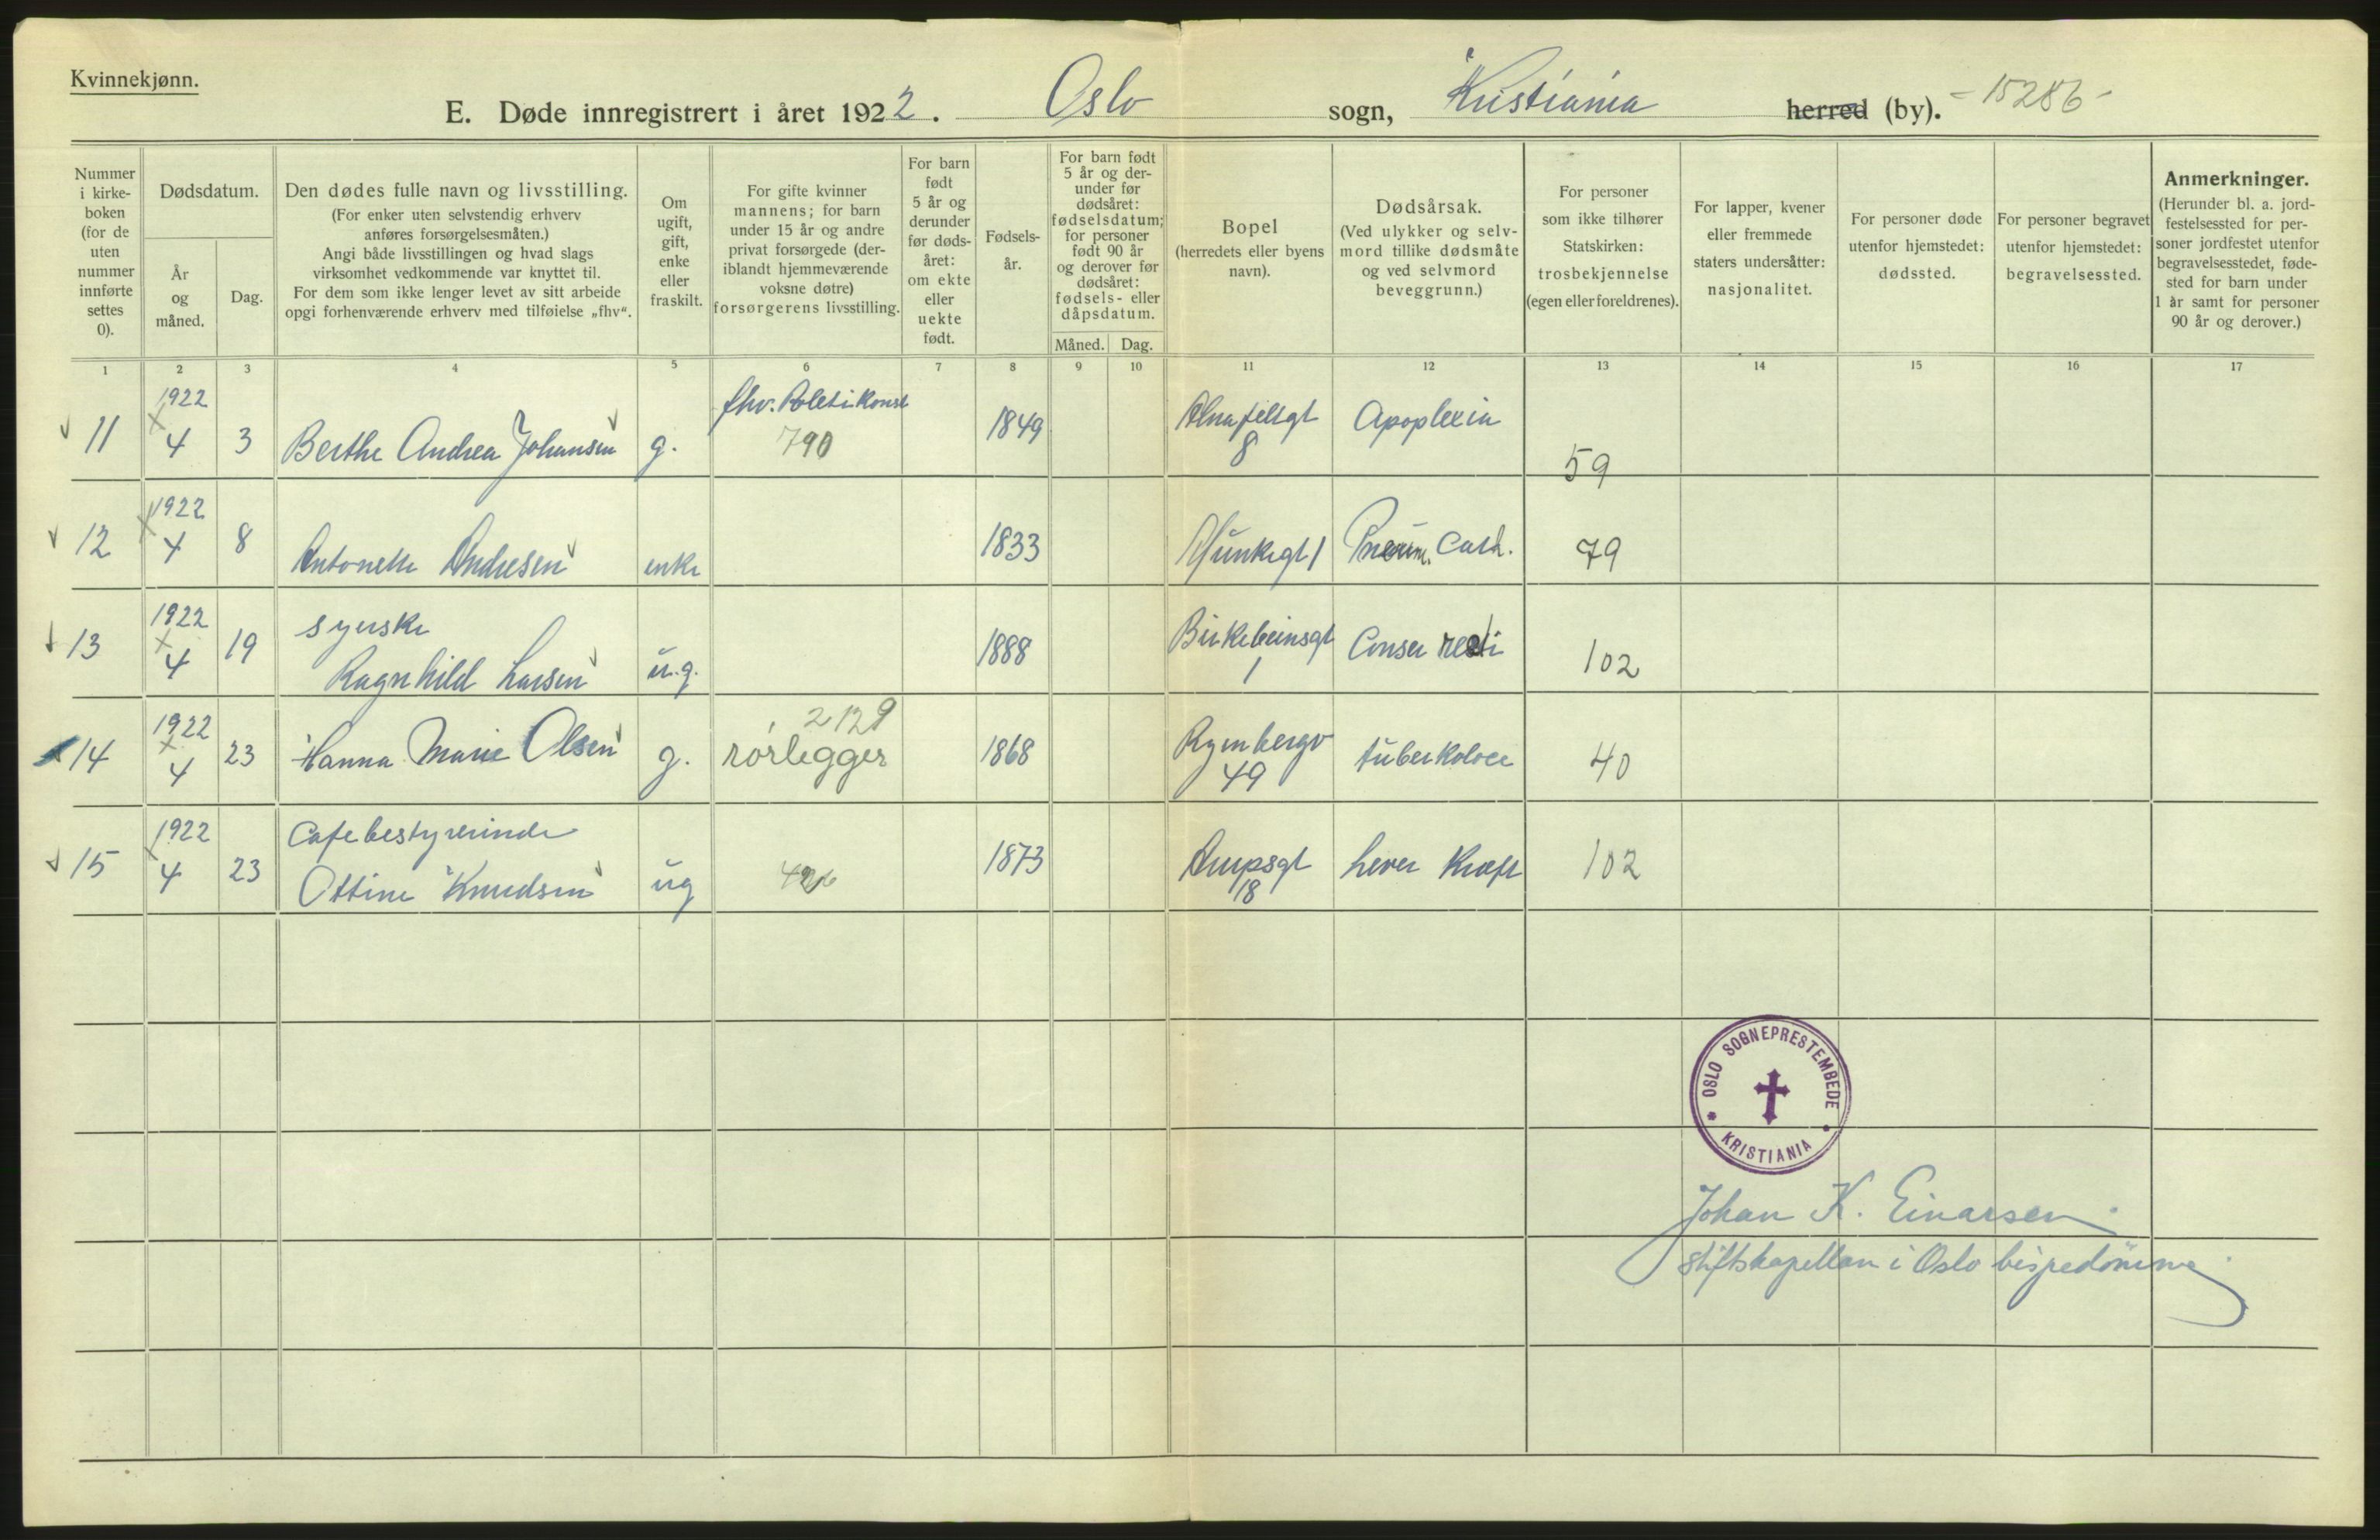 Kvinnekjønn.
E. Døde innregistrert i året 1922. Oslo sogn, Kristiania herred (by). -15286-
Nummer i kirkeboken (for de uten nummer innførte settes 0).
Dødsdatum.
År og måned.
Dag.
Den dødes fulle navn og livsstilling.
(For enker uten selvstendig erhverv
anføres forsørgelsesmåten.)
Angi både livsstillingen og hvad slags
virksomhet vedkommende var knyttet til.
For dem som ikke lenger levet av sitt arbeide
opgi forhenværende erhverv med tilføielse „fhv“.
Om
ugift,
gift,
enke
eller
fraskilt.
For gifte kvinner
mannens; for barn
under 15 år og andre
privat forsørgede (der-
iblandt hjemmeværende
voksne døtre)
forsørgerens livsstilling.
For barn
født
5 år og
derunder
før døds-
året:
om ekte
eller
uekte
født.
Fødsels-
år.
For barn født
5 år og der-
under før
dødsåret:
fødselsdatum;
for personer
født 90 år
og derover før
dødsåret:
fødsels- eller
dåpsdatum.
Måned. Dag.
Bopel
(herredets eller byens
navn).
Dødsårsak.
(Ved ulykker og selv-
mord tillike dødsmåte
og ved selvmord
beveggrunn.)
For personer
som ikke tilhører
Statskirken:
trosbekjennelse
(egen eller foreldrenes).
For lapper, kvener
eller fremmede
staters undersåtter:
nasjonalitet.
For personer døde
utenfor hjemstedet:
dødssted.
For personer begravet
utenfor hjemstedet:
begravelsessted.
Anmerkninger.
(Herunder bl. a. jord-
festelsessted for per-
soner jordfestet utenfor
begravelsesstedet, føde-
sted for barn under
1 år samt for personer
90 år og derover.)
1 2 3 4 5 6 7 8 9 10 11 12 13 14 15 16 17
1922 fhv. Politikonst
11 4 3 Berthe Andrea Johansen g. 790 1849 Alnafeltgt 8 Apoplexia 59
1922
12 4 8 Antonette Andresen enke 1833 Munkegt 1 Pneum. Cath. 79
1922 syerske
13 4 19 Ragnhild Larsen u.g. 1888 Birkebeinsgt 1 Cancer recti 102
1922 2129
14 4 23 Hanna Marie Olsen g. rørlegger 1868 Rynbergv 49 tuberkolose 40
1922 Cafebestyrerinde
15 4 23 Ottine Knudsen ug 1873 Arupsgt 18 Lever Kræft 102
OSLO SOGNEPRESTEMBEDE
KRISTIANIA
Johan K. Einarsen
stiftskapellan i Oslo bispedømme